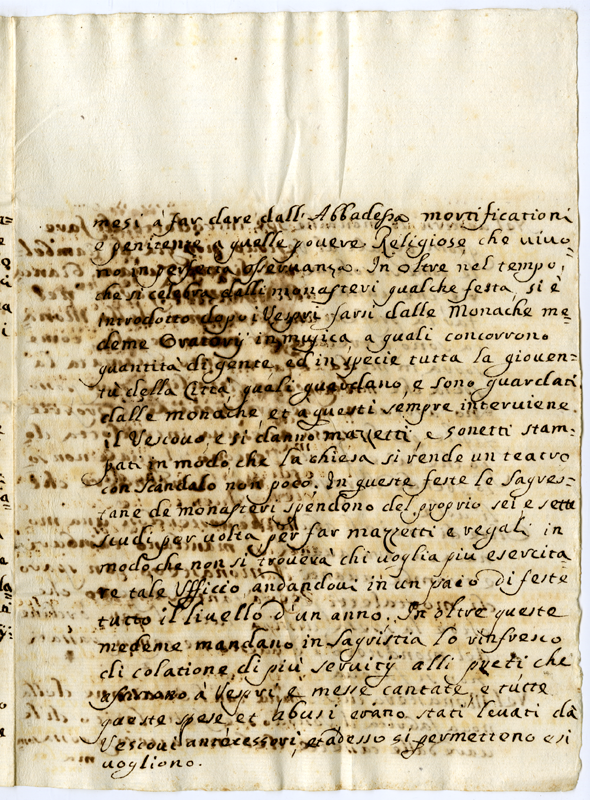 mesi à far dare dall' Abbadessa mortificationi
e penitenze a quelle povere Religiose che vivo-
no in perfetta osservanza. In oltre nel tempo,
che si celebra dalli monasteri qualche festa, si è
introdotto dopo i Vespri farsi dalle Monache me-
deme Oratorij in musica a quali concorrono
quantità di gente, ed in specie tutta la gioven-
tù della Città, quali guardano, e sono guardati
dalle monache et a questi sempre interviene
il Vescovo, e si danno mazzetti, e sonetti stam-
pati in modo che la chiesa si rende un teatro
con scandalo non poco. In queste feste le Sagres-
tane de monasteri spendono del proprio sei e sette
scudi per volta per far mazzetti e regali in
modo che non si troverà chi voglia più esercita-
re tale Ufficio andandovi in un paro di feste
tutto il livello d'un anno. In oltre queste
medeme mandano in Sagristia lo rinfresco
di colatione di più servitij alli preti che
à Vespri e messe cantate, e tutte
queste spese et abusi erano stati levati da
Vescovi antecessori, et adesso si permetteno e si
vogliono.